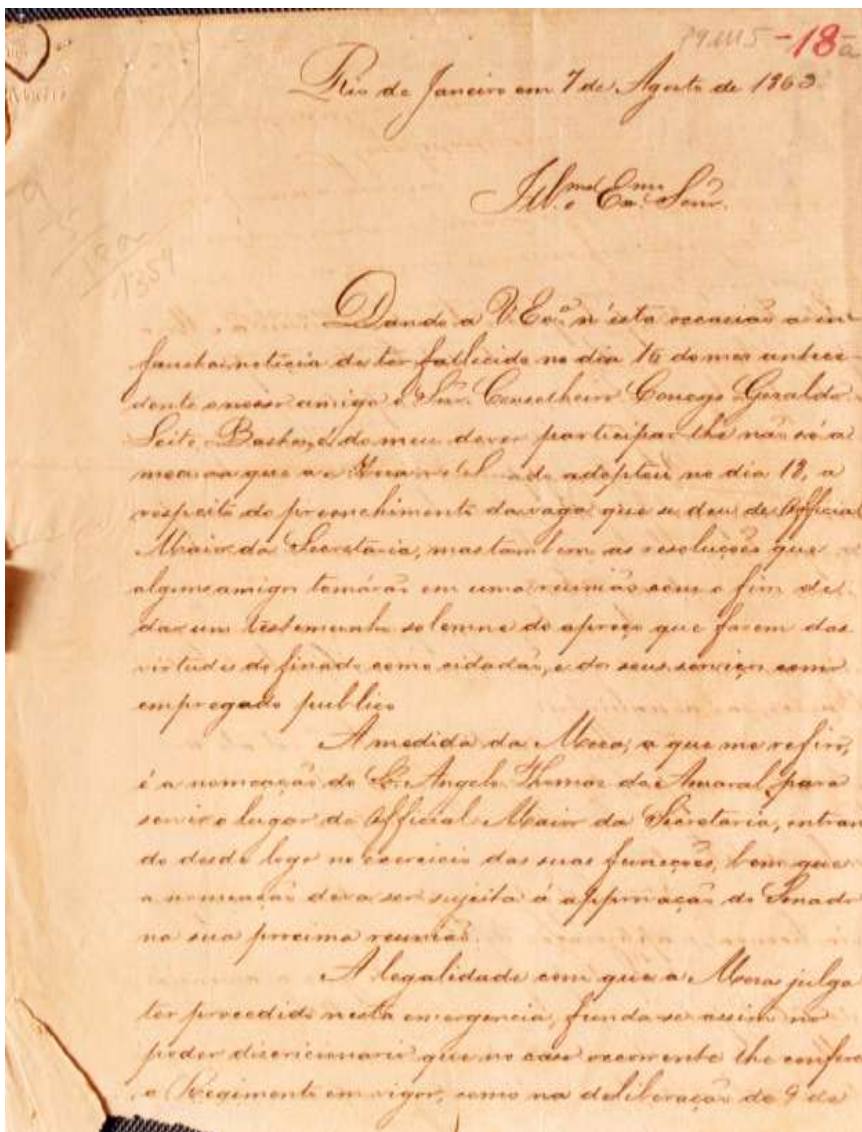 -18a
Rio de Janeiro em 7 de Agosto de 1863.
Ill.mo e Ex.mo Senr.
Dando a V. Ex.a n'esta occasião a in-
fausta noticia de ter fallecido no dia 16 do mez antece
dente o nosso amigo o Snr. Conselheiro Conego Geraldo
Leite Bastos, é do meu dever participar-lhe não só a
que a do adoptou no dia 18, a
respeito do preenchimento da vaga que se deu de Official
Maior da Secretaria, mas tambem as resoluções que
alguns amigos tomárão em uma reunião com o fim de
dar um testemunho solemne do apreço que fazem das
virtudes do finado como cidadão, e dos seus serviços como
empregado publico
A medida da Meza, a que me refiro,
é a nomeação do Sr. Angelo Thomaz do Amaral para
servir o lugar de Official Maior da Secretaria, entran
do desde logo no exercicio das suas funcções, bem que
a nomeação deva ser sujeita á approvação do Senado
na sua proxima reunião.
A legalidade com que a Meza julga
ter procedido nesta emergencia, funda-se assim no
poder discricionario que no caso occorrente lhe confere
o Regimento em vigor, como na deliberação de 9 de